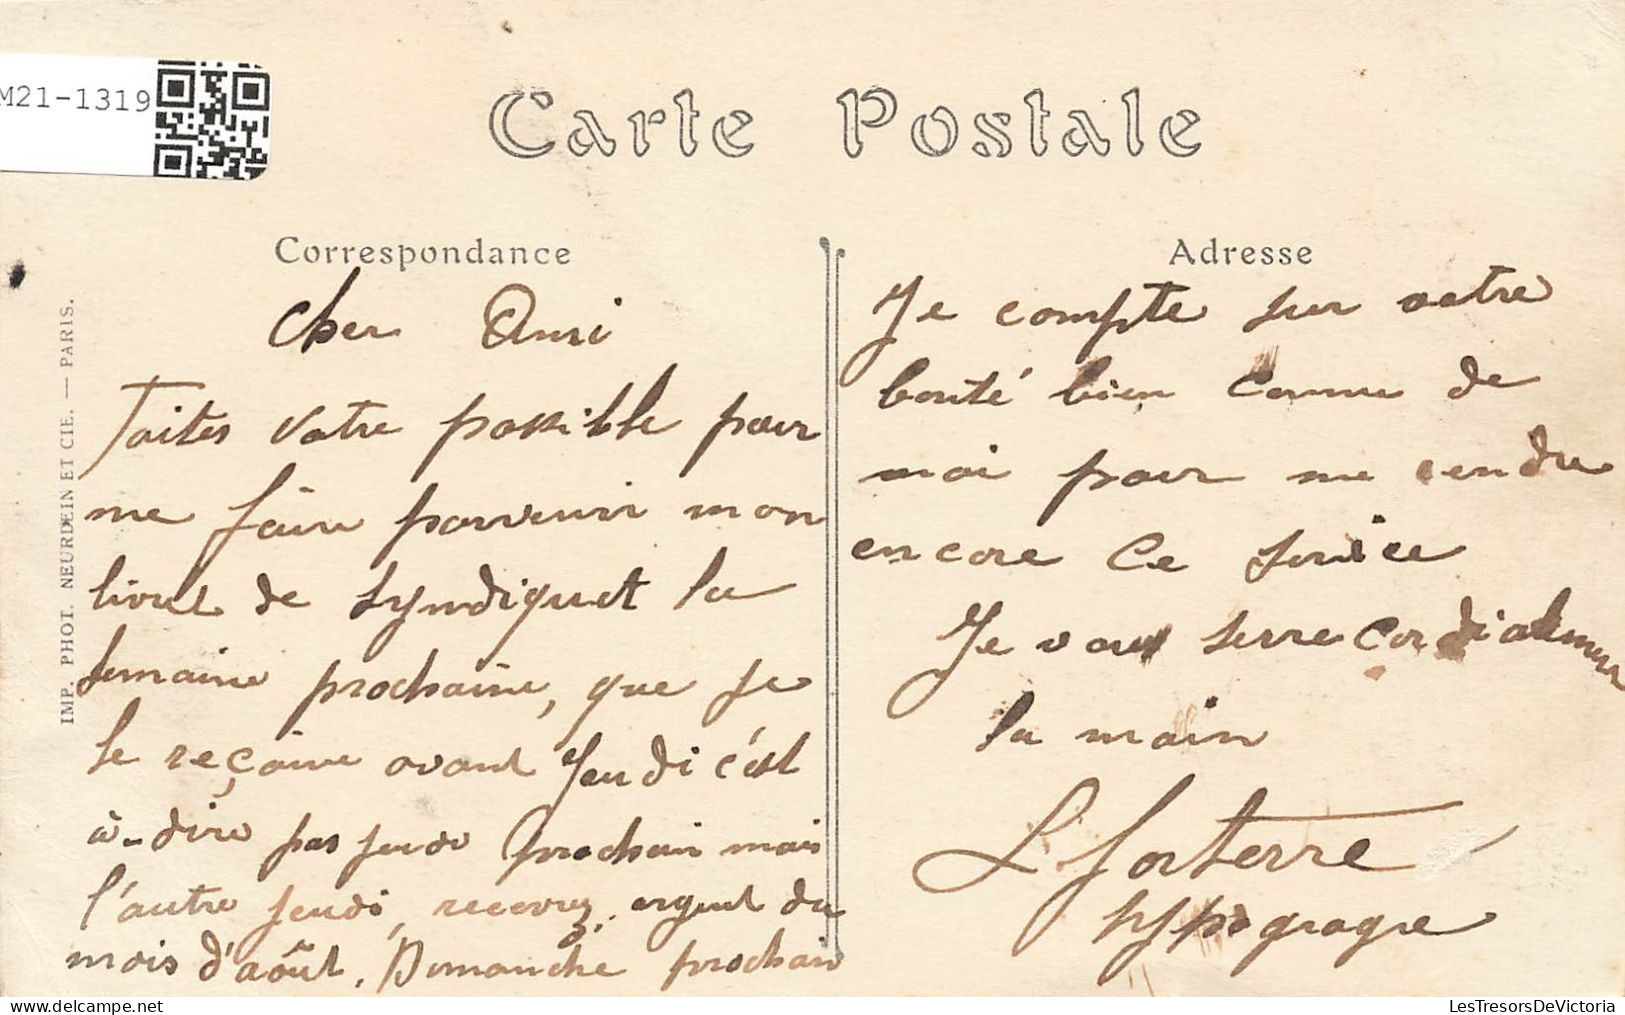 M21-1319
Carte Postale
Correspondance
Adresse
IMP. PHOT. NEURDEIN ET CIE. — PARIS.
Cher Ami
Faites votre possible pour
me faire parvenir mon
livret de syndiquet la
semaine prochaine, que je
le reçoive avant Jeudi c'est
à-dire pas jeudi prochain mais
l'autre jeudi, recevrez argent du
mois d'août, Dimanche prochain
Je compte sur votre
bonté bien connu de
moi pour me rendre
encore ce service
Je vous serre cordialement
la main
LesTresorsDeVictoria